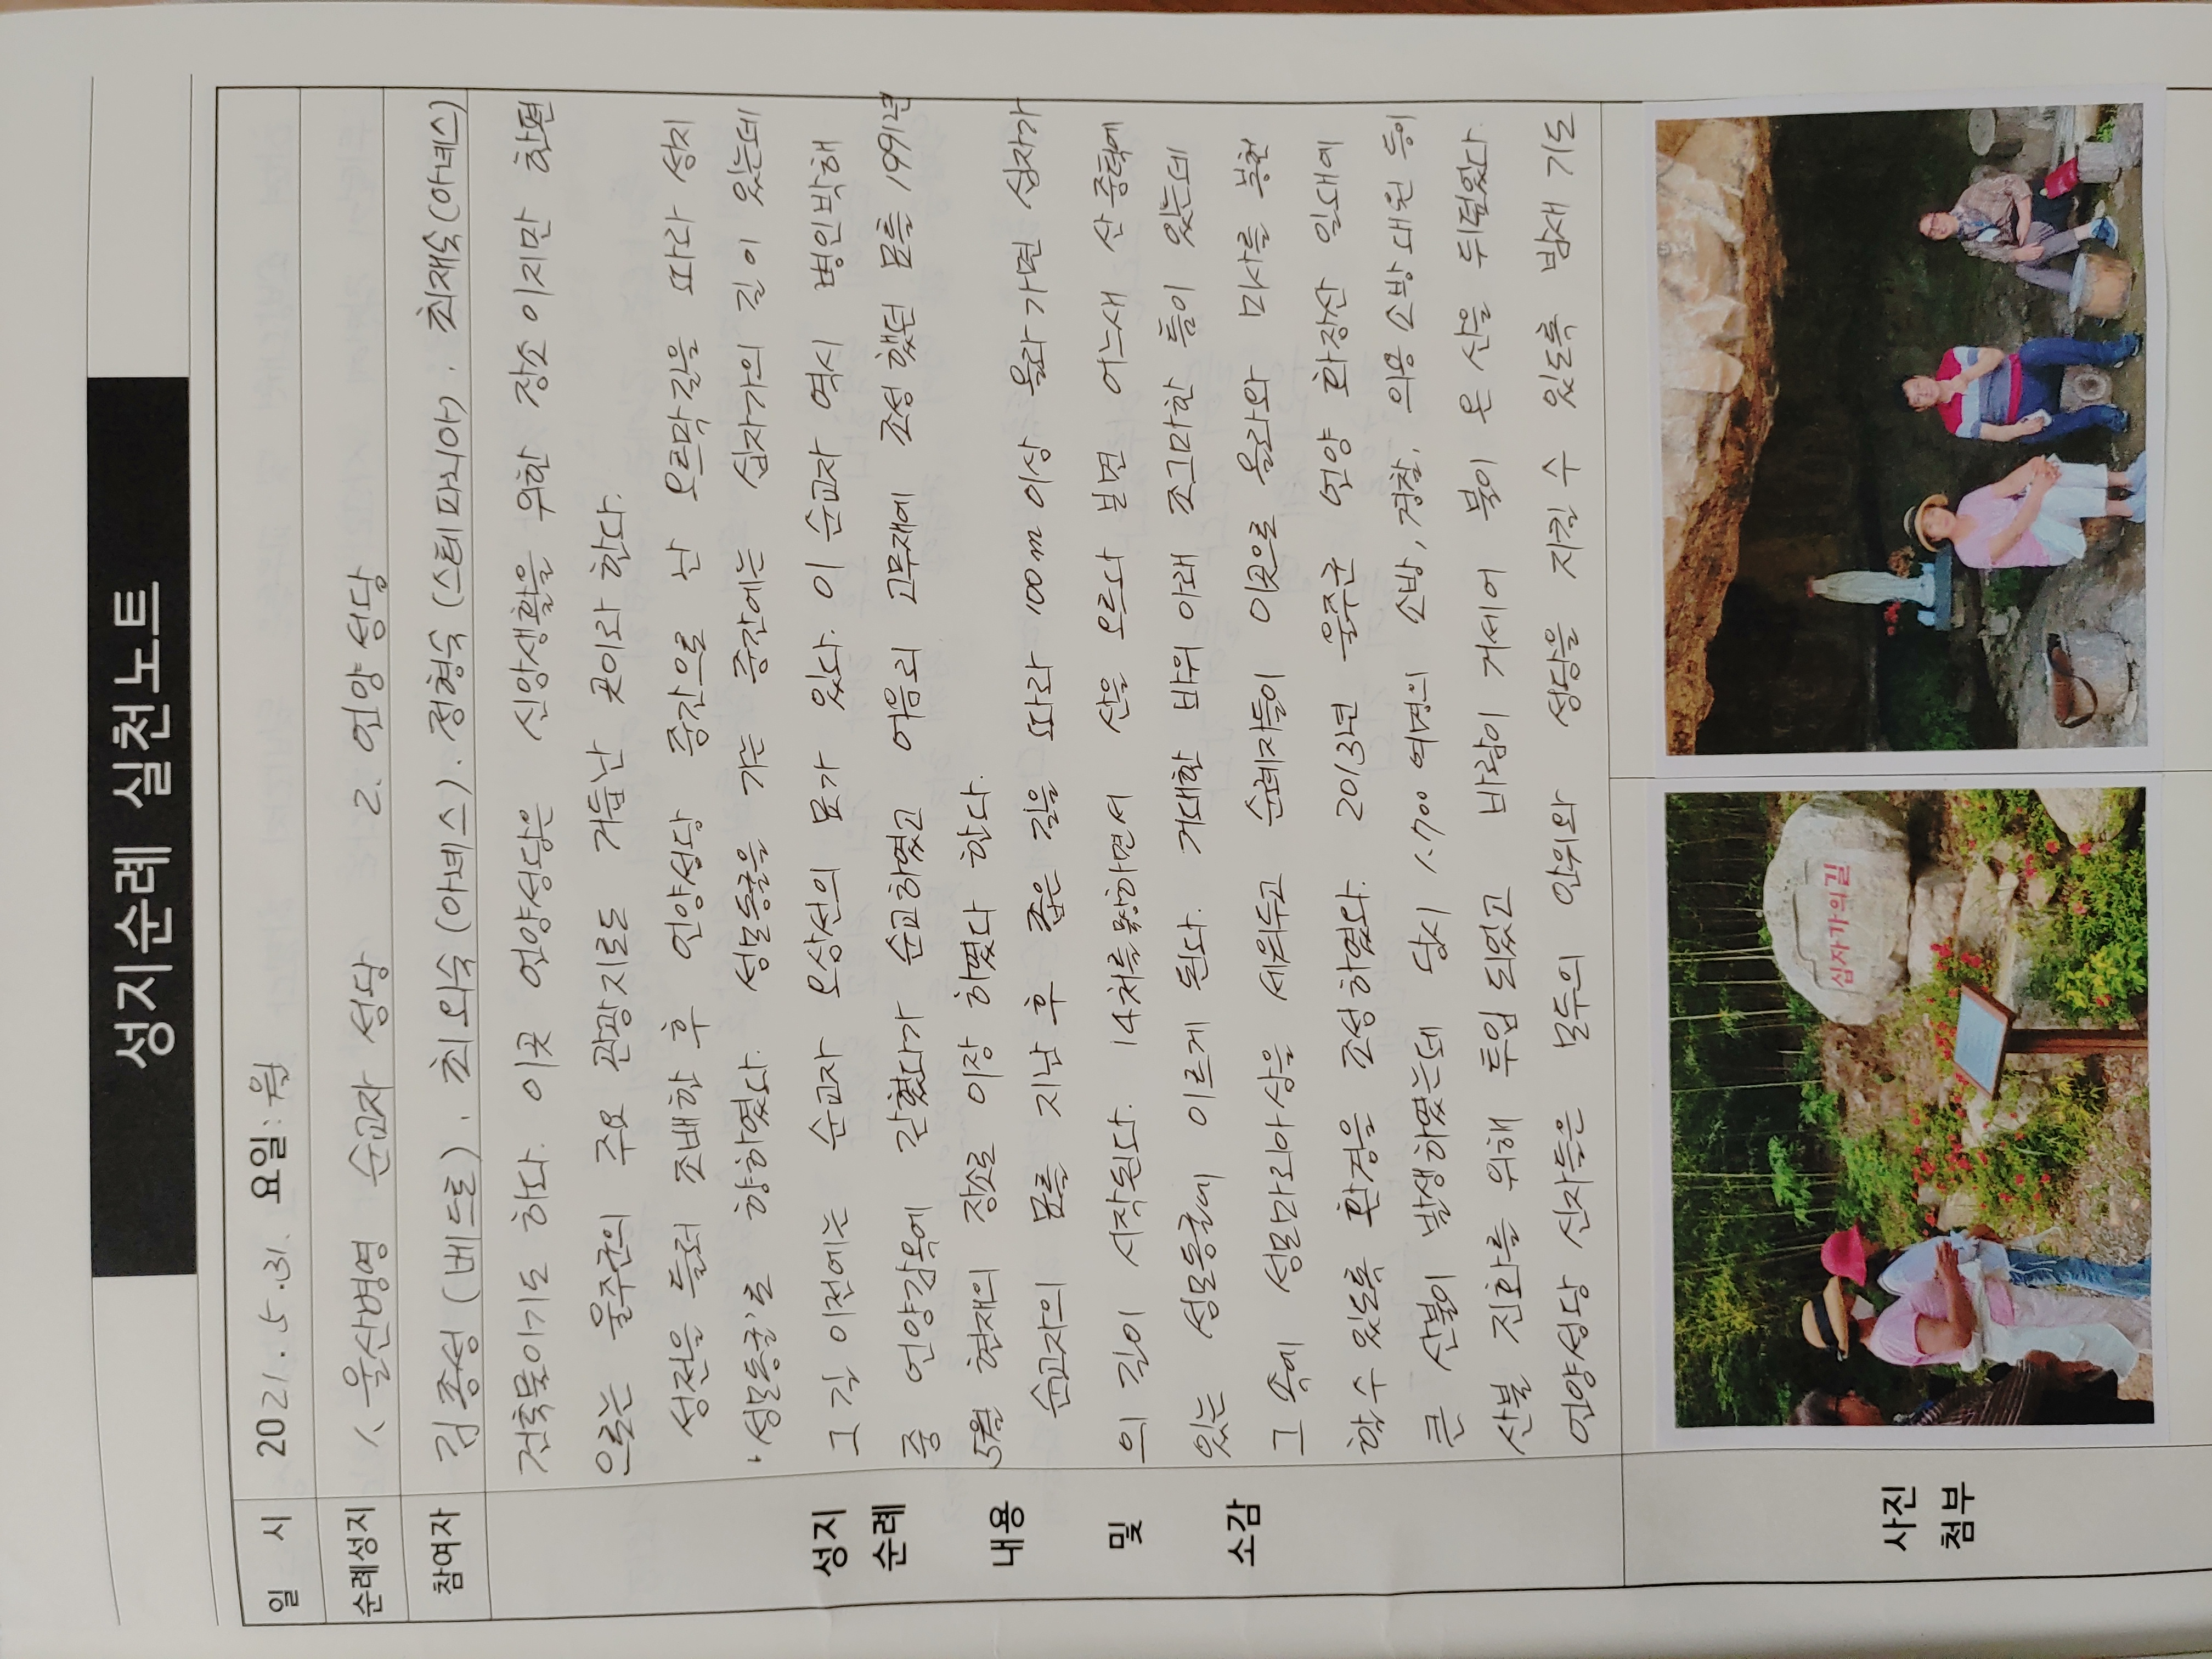 성지순례 실천노트
일 시 2021. 5. 31. 요일: 월
순례성지 1. 울산병영 순교자 성당 2. 언양성당
참여자 김종성(베드로). 최외숙(아녜스). 정형숙(스테파니아). 최재숙(아녜스)
건축물이기도 하다. 이곳 언양성당은 신앙생활을 위한 장소이지만 한편
으로는 울주군의 주요 관광지로도 거듭난 곳이라 한다.
성전을 들러 조배한 후 언양성당 중간으로 난 오르막길을 따라 성지
'성모동굴'로 향하였다. 성모동굴을 가는 중간에는 십자가의 길이 있는데
그 길 이전에는 순교자 오상선의 묘가 있다. 이 순교자 역시 병인박해
중 언양감옥에 갇혔다가 순교하였고 어음리 고무재에 조성했던 묘를 1991년
5월 현재의 장소로 이장하였다 한다.
순교자의 묘를 지난 후 좁은 길을 따라 100m 이상 올라가면 십자가
의 길이 시작된다. 14처를 향하면서 산을 오르다 보면 어느새 산 중턱에
있는 성모동굴에 이르게 된다. 거대한 바위 아래 조그마한 틈이 있는데
그 속에 성모마리아상을 세워두고 순례자들이 이곳으로 올라와 미사를 봉헌
할 수 있도록 환경을 조성하였다. 2013년 울주군 언양 화장산 일대에
큰 산불이 발생하였는데 당시 1,700여명의 소방, 경찰, 의용소방대원 등이
산불 진화를 위해 투입되었고 바람이 거세어 불이 온 산을 뒤덮었다.
언양성당 신자들은 모두의 안위와 성당을 지킬 수 있도록 밤새 기도
성지
순례
내용
및
소감
사진
첨부
십자가의길